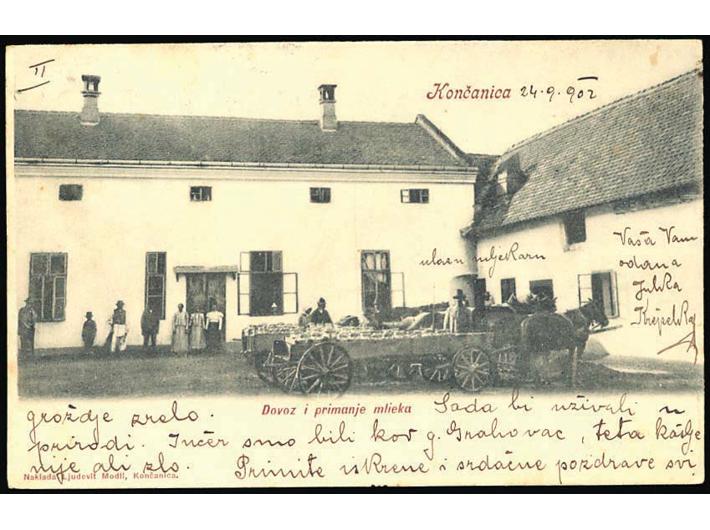 II
Končanica 24.9.902
ulaz u mljekaru
Vaša Vam
odana
Julka
Krejelka
Dovoz i primanje mlieka
grožđe zrelo. Sada bi uživali u
prirodi. Inčer smo bili kod g. Grahovac, teta kašlje
nije ali zlo. Primite iskrene i srdačne pozdrave svi
Naklada Ljudevit Modli, Končanica.